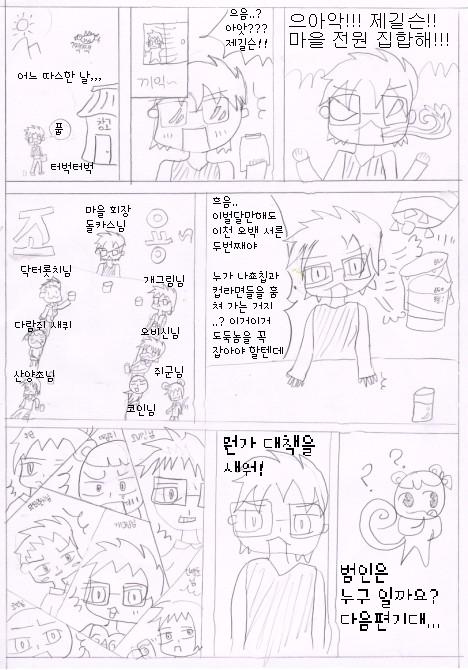 어느 따스한 날,,,
풉
창고
터벅터벅
으음..?
아앗???
제길슨!!
끼익~
으아악!!! 제길슨!!
마을 전원 집합해!!!
조
용
마을 회장
돌카스님
닥터롯치님
개그림님
다람쥐 새퀴
오비신님
산양초님
쥐군님
코인님
흐음..
이벌달만해도
이천 오백 서른
두번째야
누가 나쵸칩과
컵라면들을 훔
쳐 가는 거지
..? 이거이거
도둑놈을 꼭
잡아야 할텐데
GAG
뭔가 대책을
새워!
? ?
범인은
누구 일까요?
다음편기대...